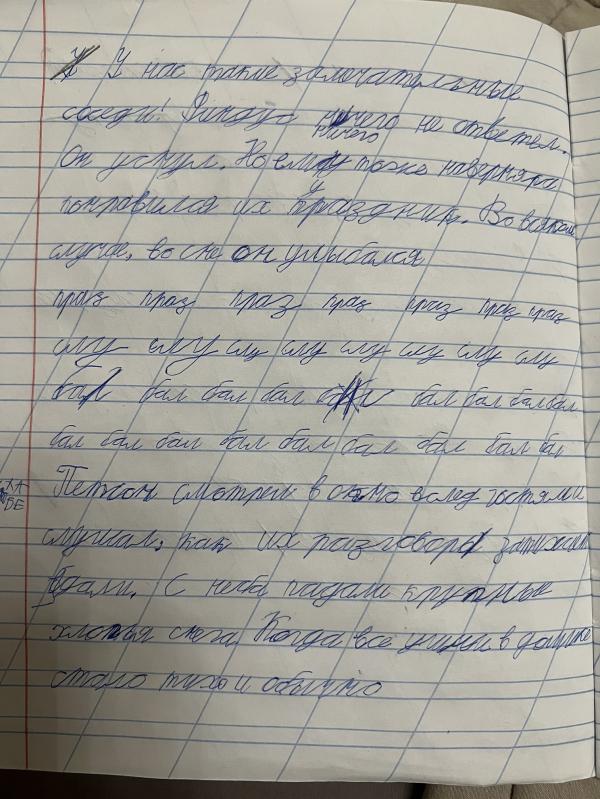 У нас такие замечательные
соседи! Финдус ничего не ответел.
ничего
Он уснул. Но ему тоже наверняка
понравился их праздник. Во всяком
случае, во сне он улыбался
праз праз праз праз праз праз праз
слу слу слу слу слу слу слу слу
бал бал бал бал бал бал бал бал
бал бал бал бал бал бал бал бал бал
Петсон смотрел в окно вслед гостям и
слушал, как их разговоры затихают
вдали. С неба падали крупные
хлопья снега. Когда все ушли в домике
стало тихо и обычно